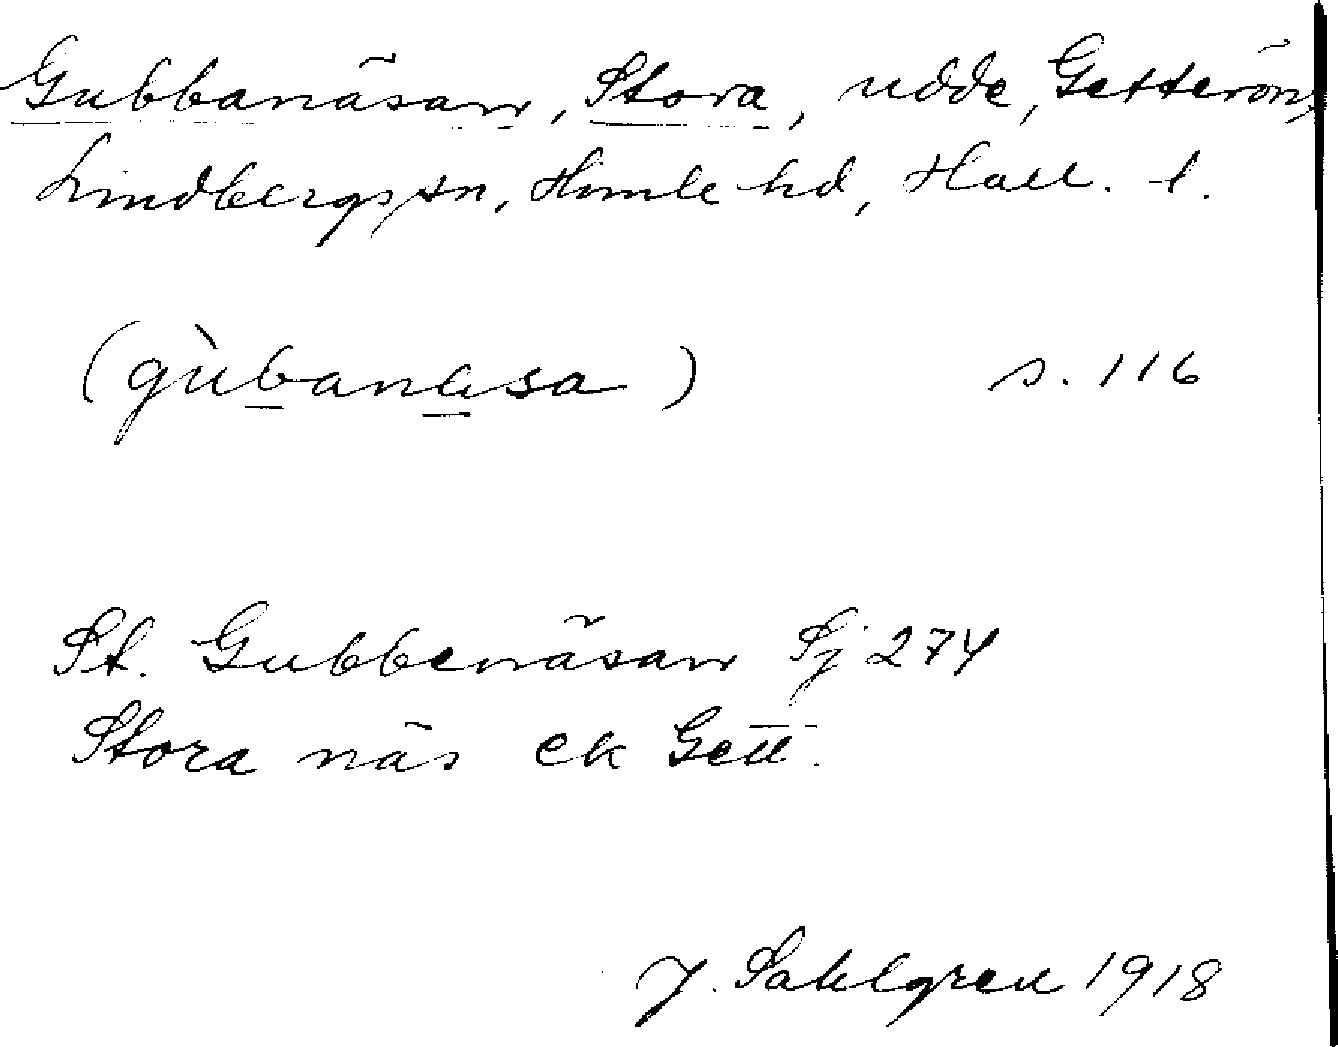 Gubbanäsan, Stora, udde, Getterön,
Lindbergs sn, Himle hd, Hall. l.
(gùbanasa) s. 116
St. Gubbenäsan Sj 274
Stora näs ek Gett.
J. Sahlgren 1918